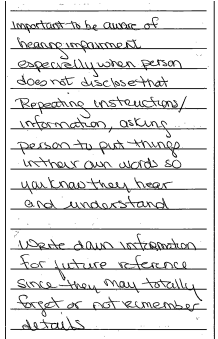 Important to be aware of
hearing impairment
especially when person
does not disclose that
Repeating instructions/
information, asking
person to put things
in their own words so
you know they hear
and understand
Write down information
for future reference
since they may totally
forget or not remember
details